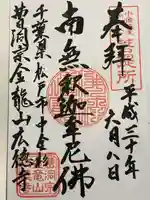 奉拝
平成三十年六月八日
南無釈迦牟尼佛
千葉県松戸市中金杉
曹洞宗金龍山広徳寺